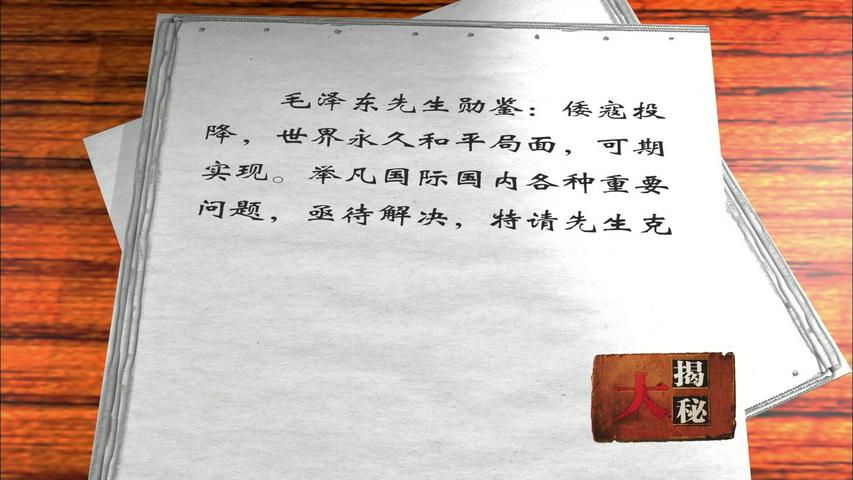 毛泽东先生勋鉴：倭寇投
降，世界永久和平局面，可期
实现。举凡国际国内各种重要
问题，亟待解决，特请先生克
大揭秘